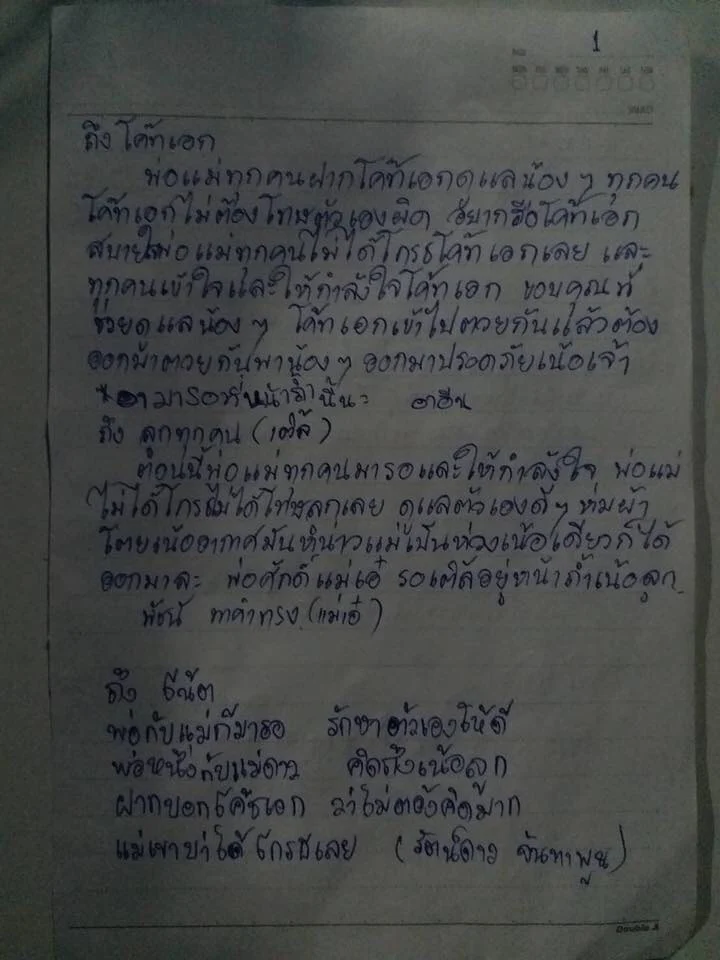 1
ถึง โค้ทเอก
พ่อแม่ทุกคนฝากโค้ทเอกดูแลน้อง ๆ ทุกคน
โค้ทเอกไม่ต้องโทษตัวเองผิด อยากฮือโค้ทเอก
สบายใจพ่อแม่ทุกคนไม่ได้โกรธโค้ทเอกเลย และ
ทุกคนเข้าใจและให้กำลังใจโค้ทเอก ขอบคุณที่
ช่วยดูแลน้อง ๆ โค้ทเอกเข้าไปตวยกันแล้วต้อง
ออกมาตวยกันพาน้อง ๆ ออกมาปรอดภัยเน้อเจ้า
มารอที่หน้าถ้ำนี้นะ
ถึง ลูกทุกคน (เติ้ล)
ตอนนี้พ่อแม่ทุกคนมารอและให้กำลังใจ พ่อแม่
ไม่ได้โกรธไม่ได้โทษลูกเลย ดูแลตัวเองดี ๆ ห่มผ้า
โตยเน้ออากาศมันหนาวแม่เป็นห่วงเน้อเดียวก็ได้
ออกมาละ พ่อศักดิ์แม่เอ๋ รอเติ้ลอยู่หน้าถ้ำเน้อลูก
พัชนี ทาคำทรง (แม่เอ๋)
ถึง นิค
พ่อกับแม่ก็มารอ รักษาตัวเองให้ดี
พ่อหนึ่งกับแม่ดาว คิดถึงเน้อลูก
ฝากบอกโค้ชเอก ว่าไม่ต้องคิดมาก
แม่เขาบ่าได้โกรธเลย (รัตน์ดาว จันทาพูน)
Double A